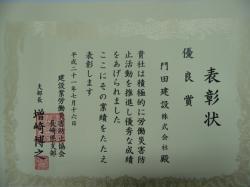 表彰状
優良賞
門田建設株式会社殿
貴社は積極的に労働災害防
止活動を推進し優秀な成績
をあげられました
ここにその業績をたたえ
表彰します
平成二十一年七月十六日
建設業労働災害防止協会
長崎県支部
支部長
増崎博之